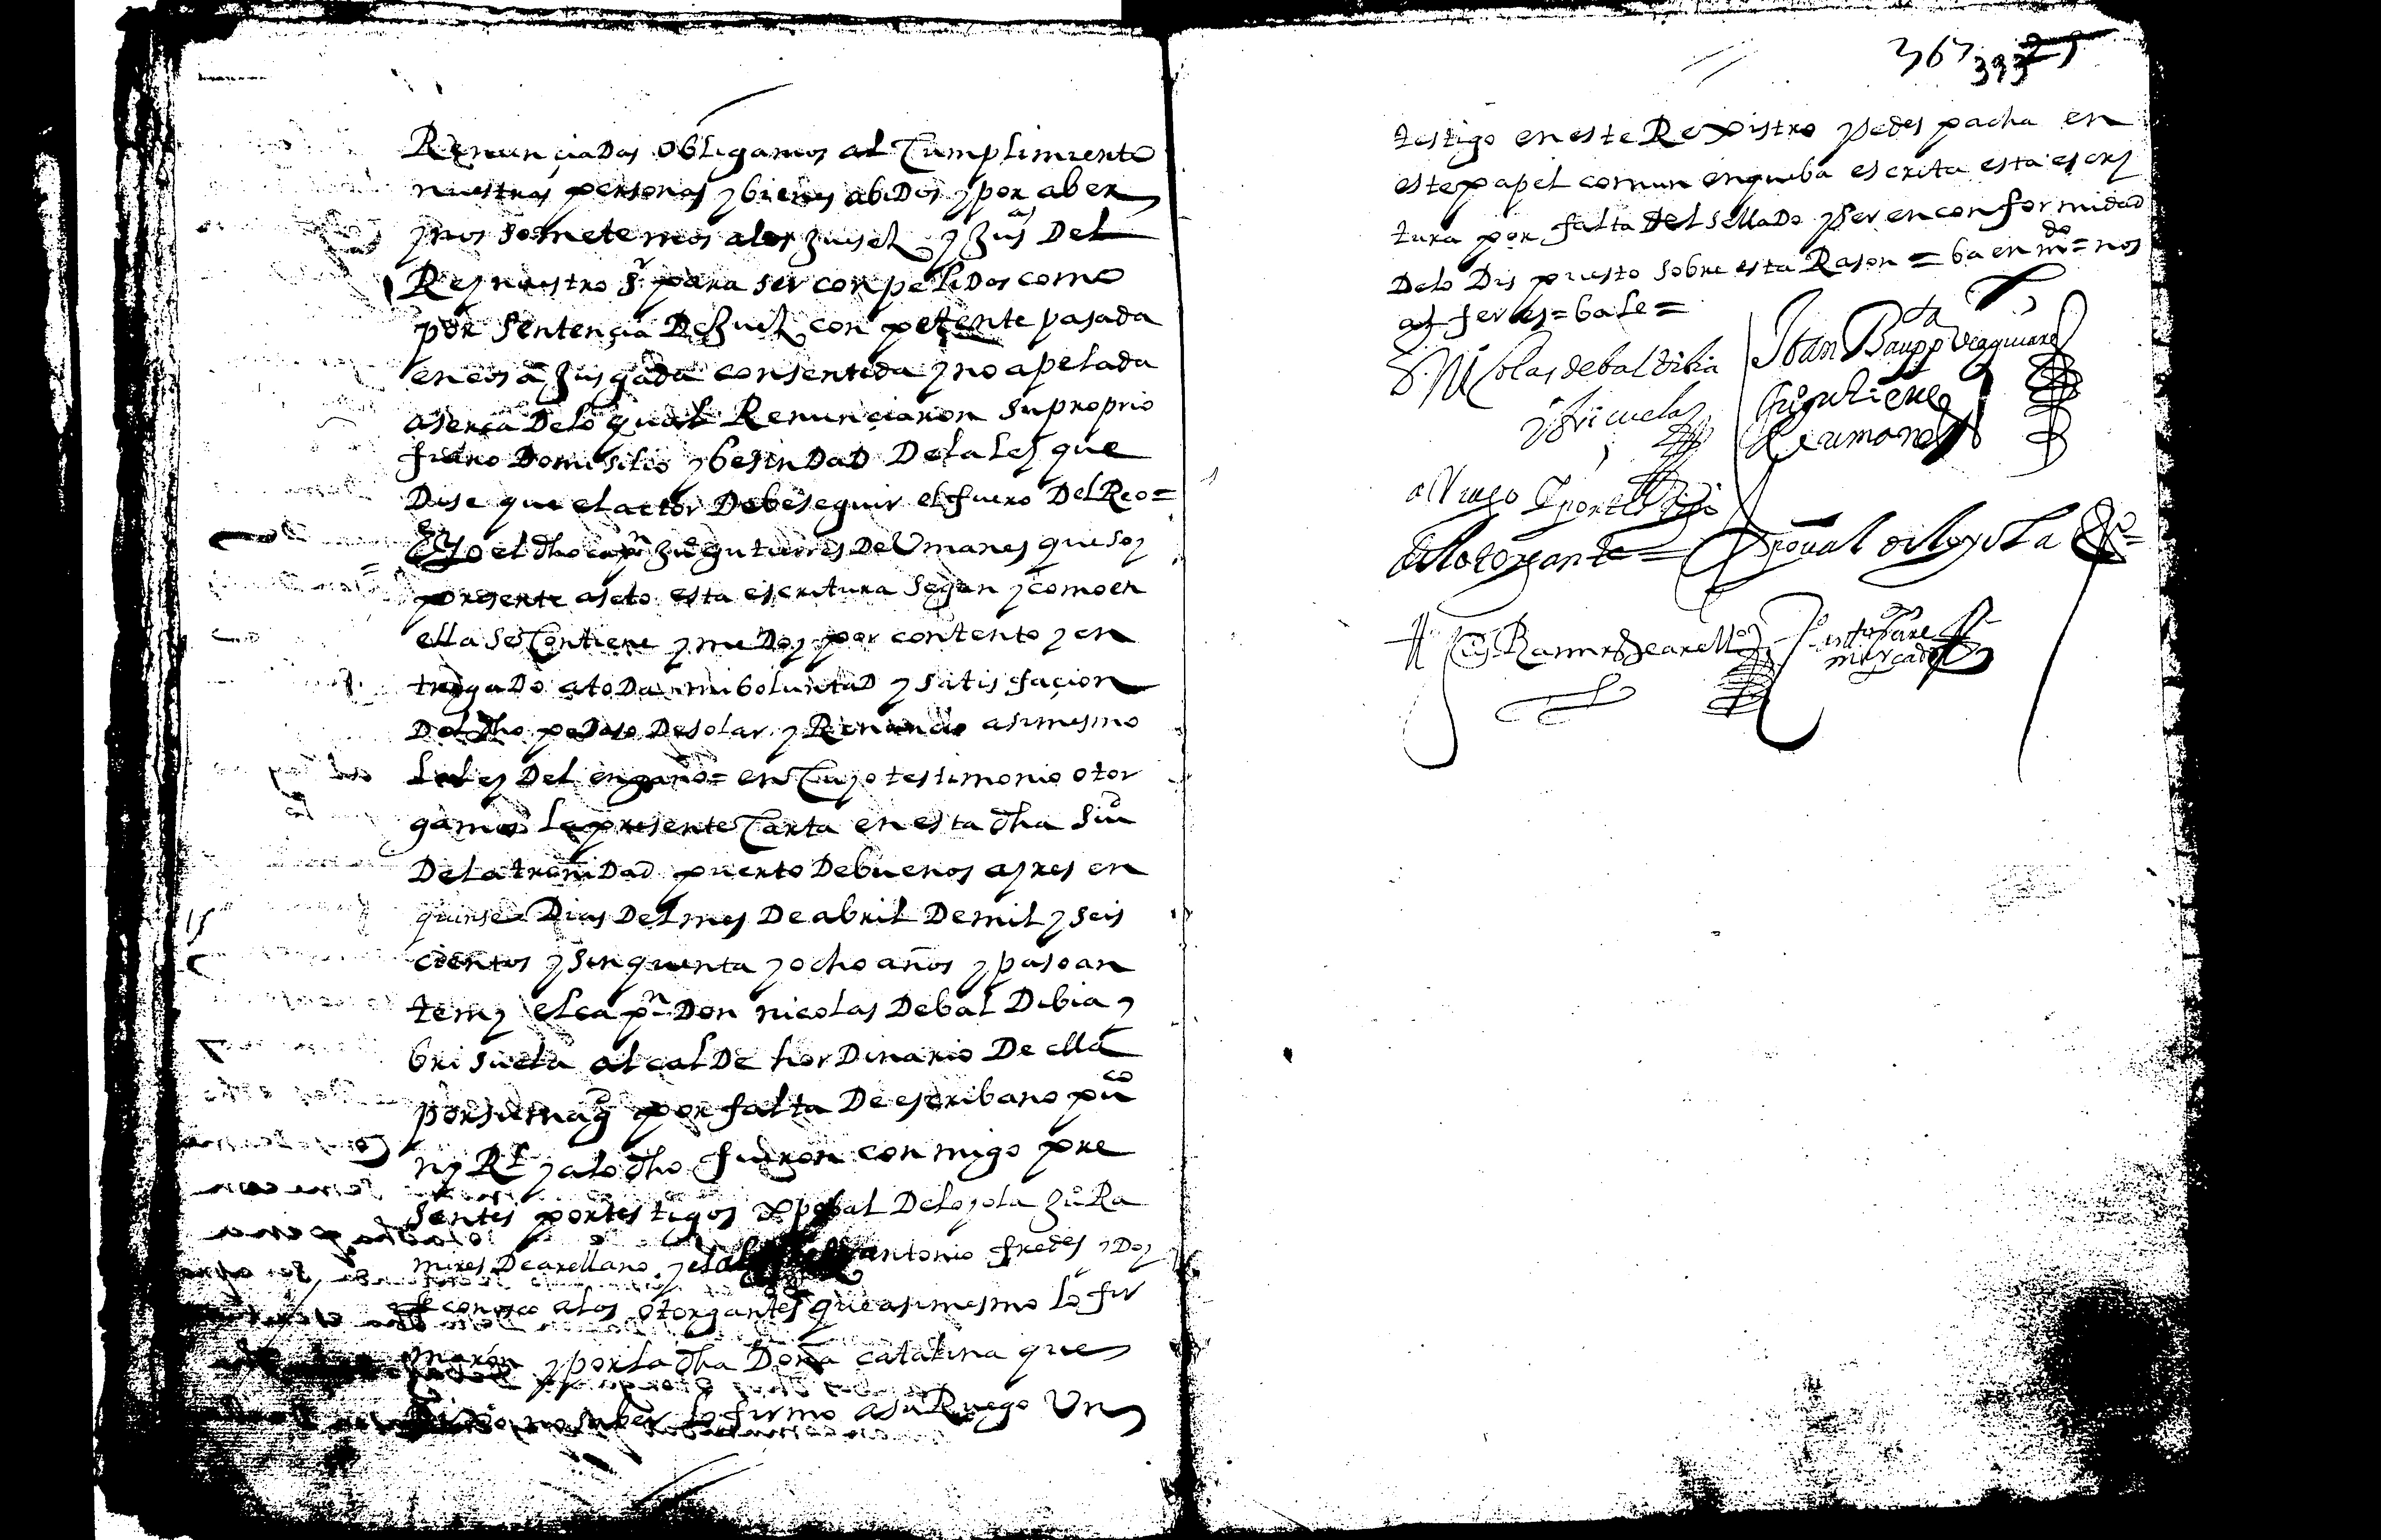 Renunciadas obligamos al Cumplimiento
nuestras personas y bienes abidos y por aber
y nos sometemos a los Juises y Jusas Del
Rey nuestro Sr para ser conpelidos como
por Sentençia De Juez con petente pasada
en cosa Jusgada consentida y no apelada
aserca Delo qual Renunciaron su proprio
fuero Domisilio y besindad Dela Ley que
Dise que el actor Debe seguir el fuero Del Reo =
E Yo el dho capn Juo gutierres De Umanes que soy
presente aseto esta escritura segun y como en
ella se Contiene y me Doy por contento y en
tregado a toda mi boluntad y satisfaçion
Del dho pedaso De solar y Renuncio asimesmo
la ley Del engaño = en Cuyo testimonio otor
gamos la presente Carta en esta dha Siud
De la trenidad puerto De buenos ayres en
quinse Dias Del mes De abril De mil y seis
cientos y sinquenta y ocho años y paso an
te my el capn Don nicolas De bal Dibia y
brisuela alcalDe hor Dinario De ella
por su magd por falta De escribano puco
ny Rl y a lo dho fueron con migo pre
sentes por testigos xpobal De loyola Juo Ra
mires De arellano y el antonio fredes y Doy
fe conosco a los otorgantes que asimesmo lo fir
maron y por la dha Doña catalina que
Dijo no saber lo firmo a su Ruego Un
367 393 25
testigo en este Rexistro y se des pacha en
este papel comun en que ba escrita esta escri
tura por falta del sellado y ser en conformidad
Delo Dis puesto sobre esta Rason = ba en mdo = nos
alferes = bale =
D. Nicolas de baldibia
y briçuela
Juan Bauppta
Juo gutierrez
de umanes
a Ruego
del otorgante = Xpoual de loyola
Juo Ramires de arellano